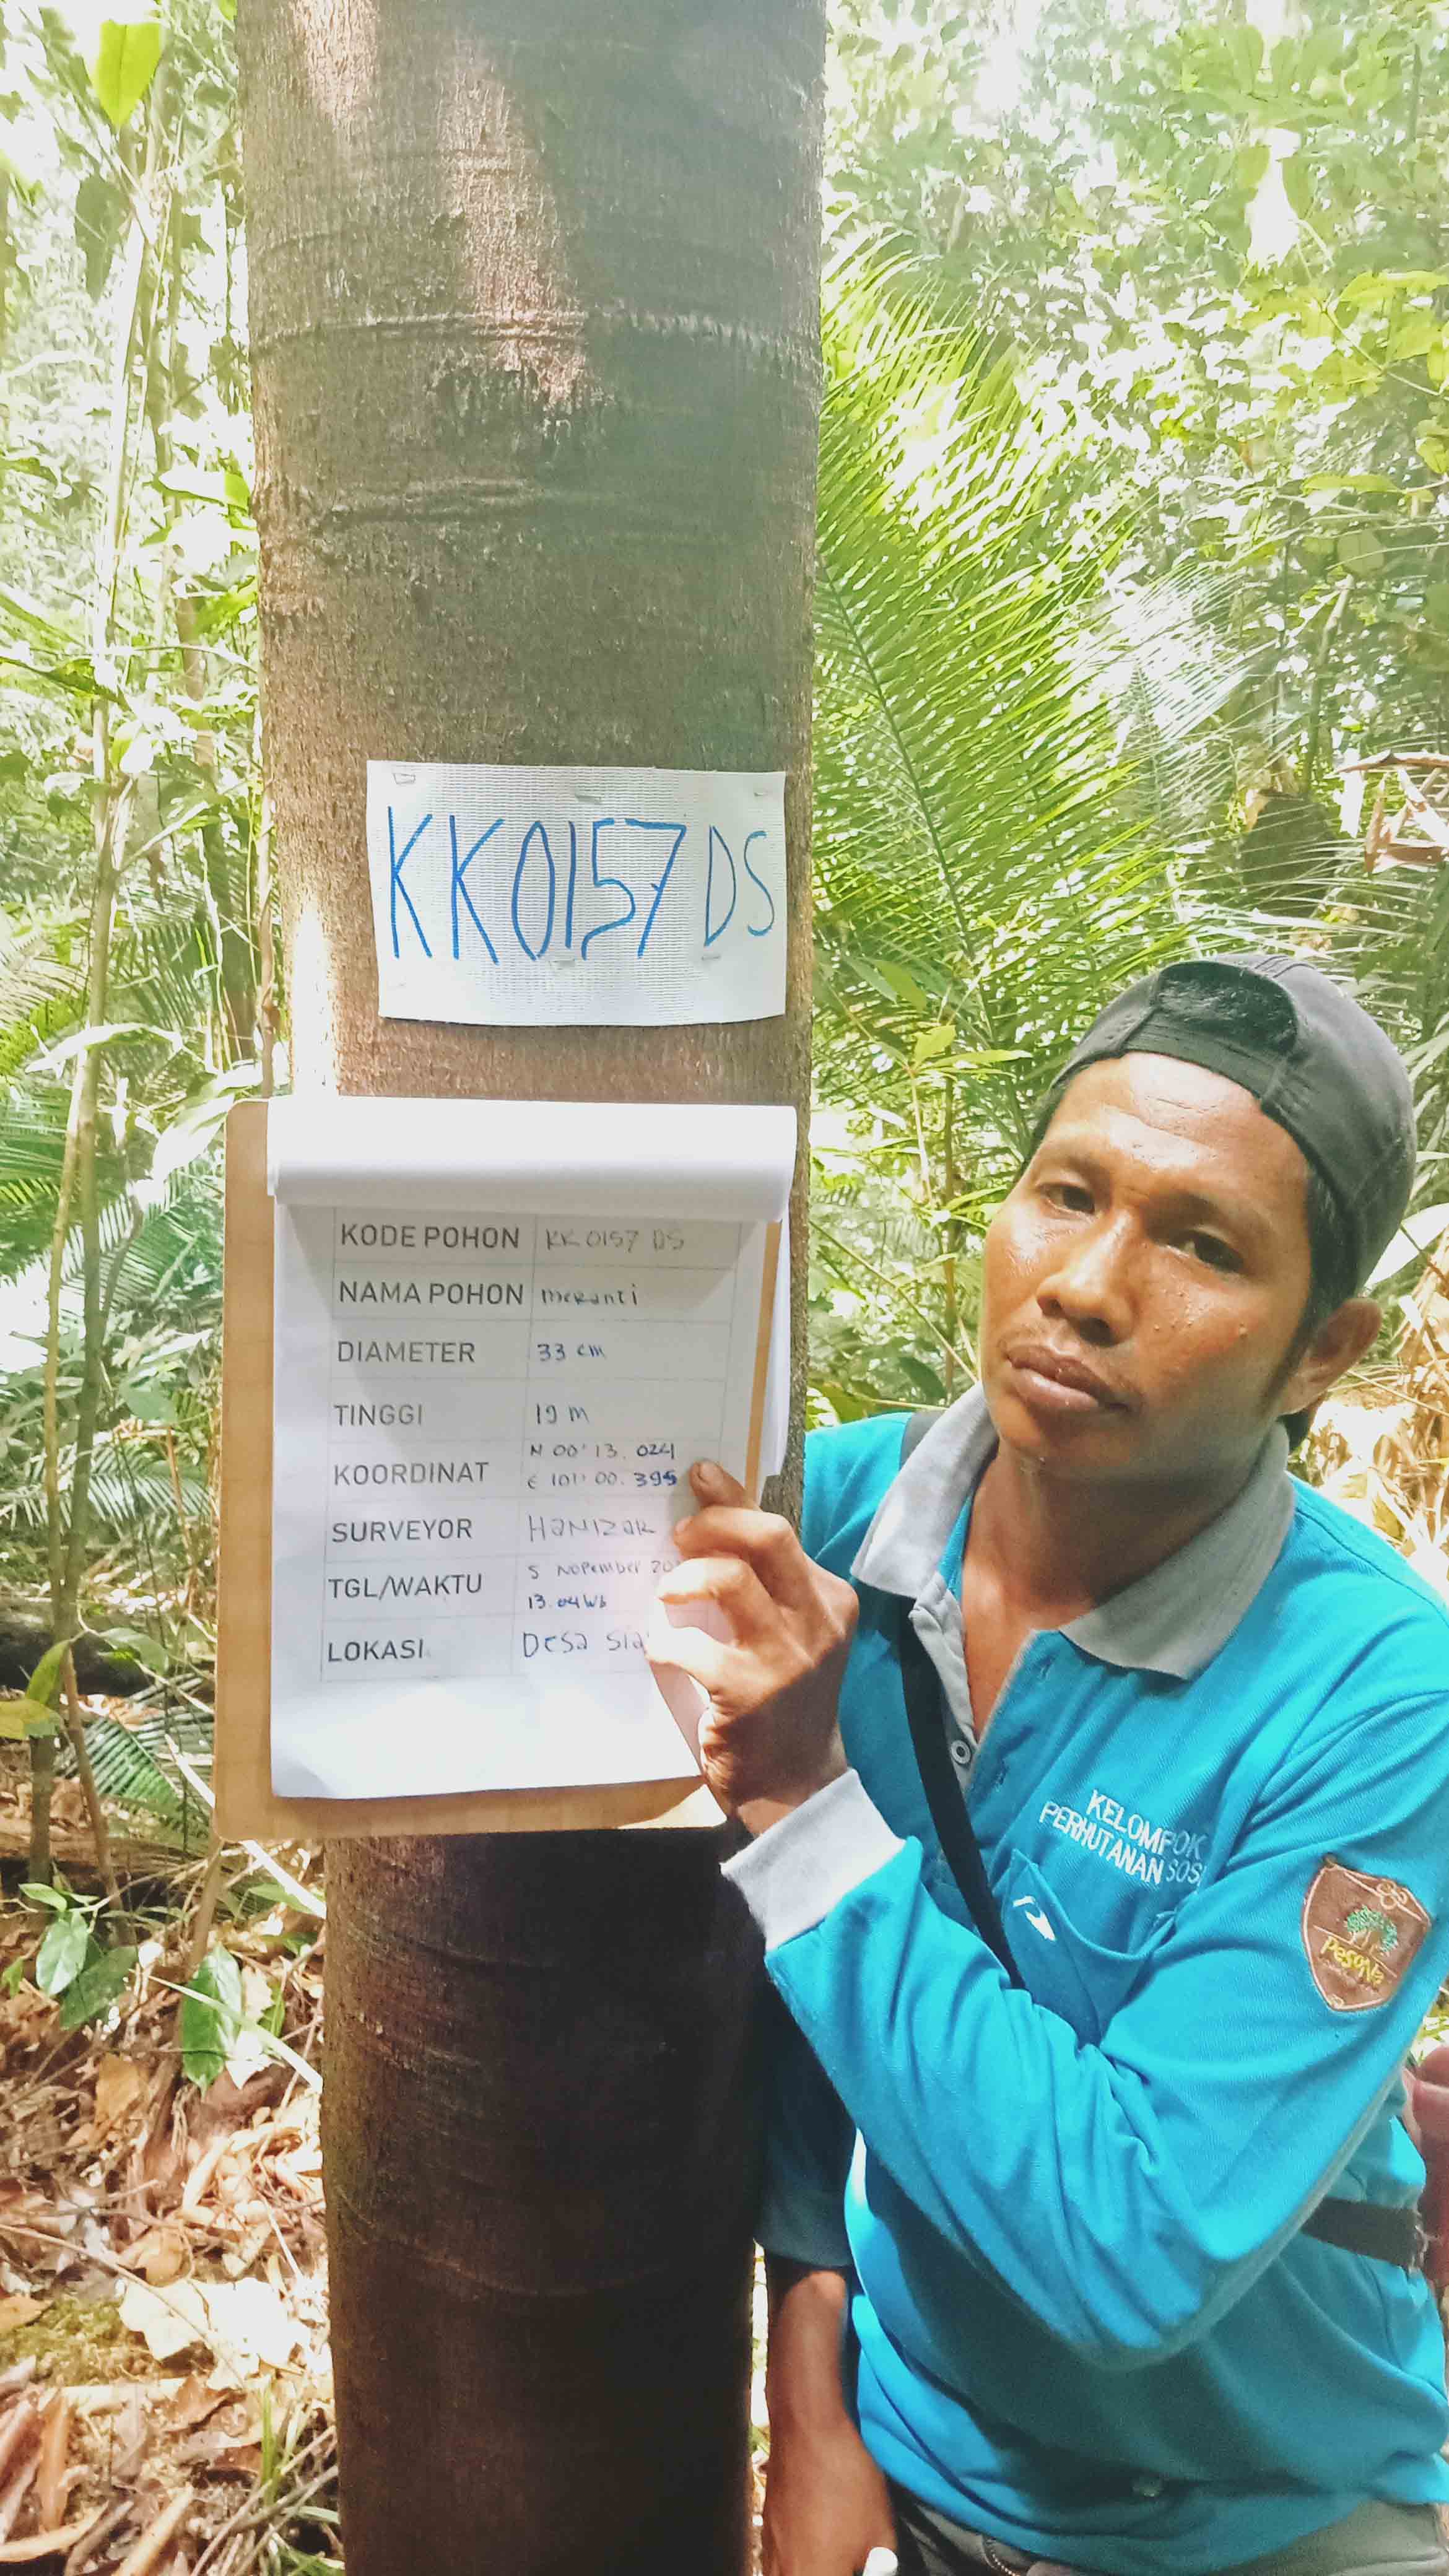 KK0157 DS
KODE POHON KK 0157 DS
NAMA POHON meranti
DIAMETER 33 cm
TINGGI 19 M
KOORDINAT N 00° 13. 024
E 101° 00. 395
SURVEYOR HaNIZaR
TGL/WAKTU 5 NoPember 20
13.04 Wb
LOKASI Desa Sia
KELOMPOK
PERHUTANAN SOSI
PesoNa